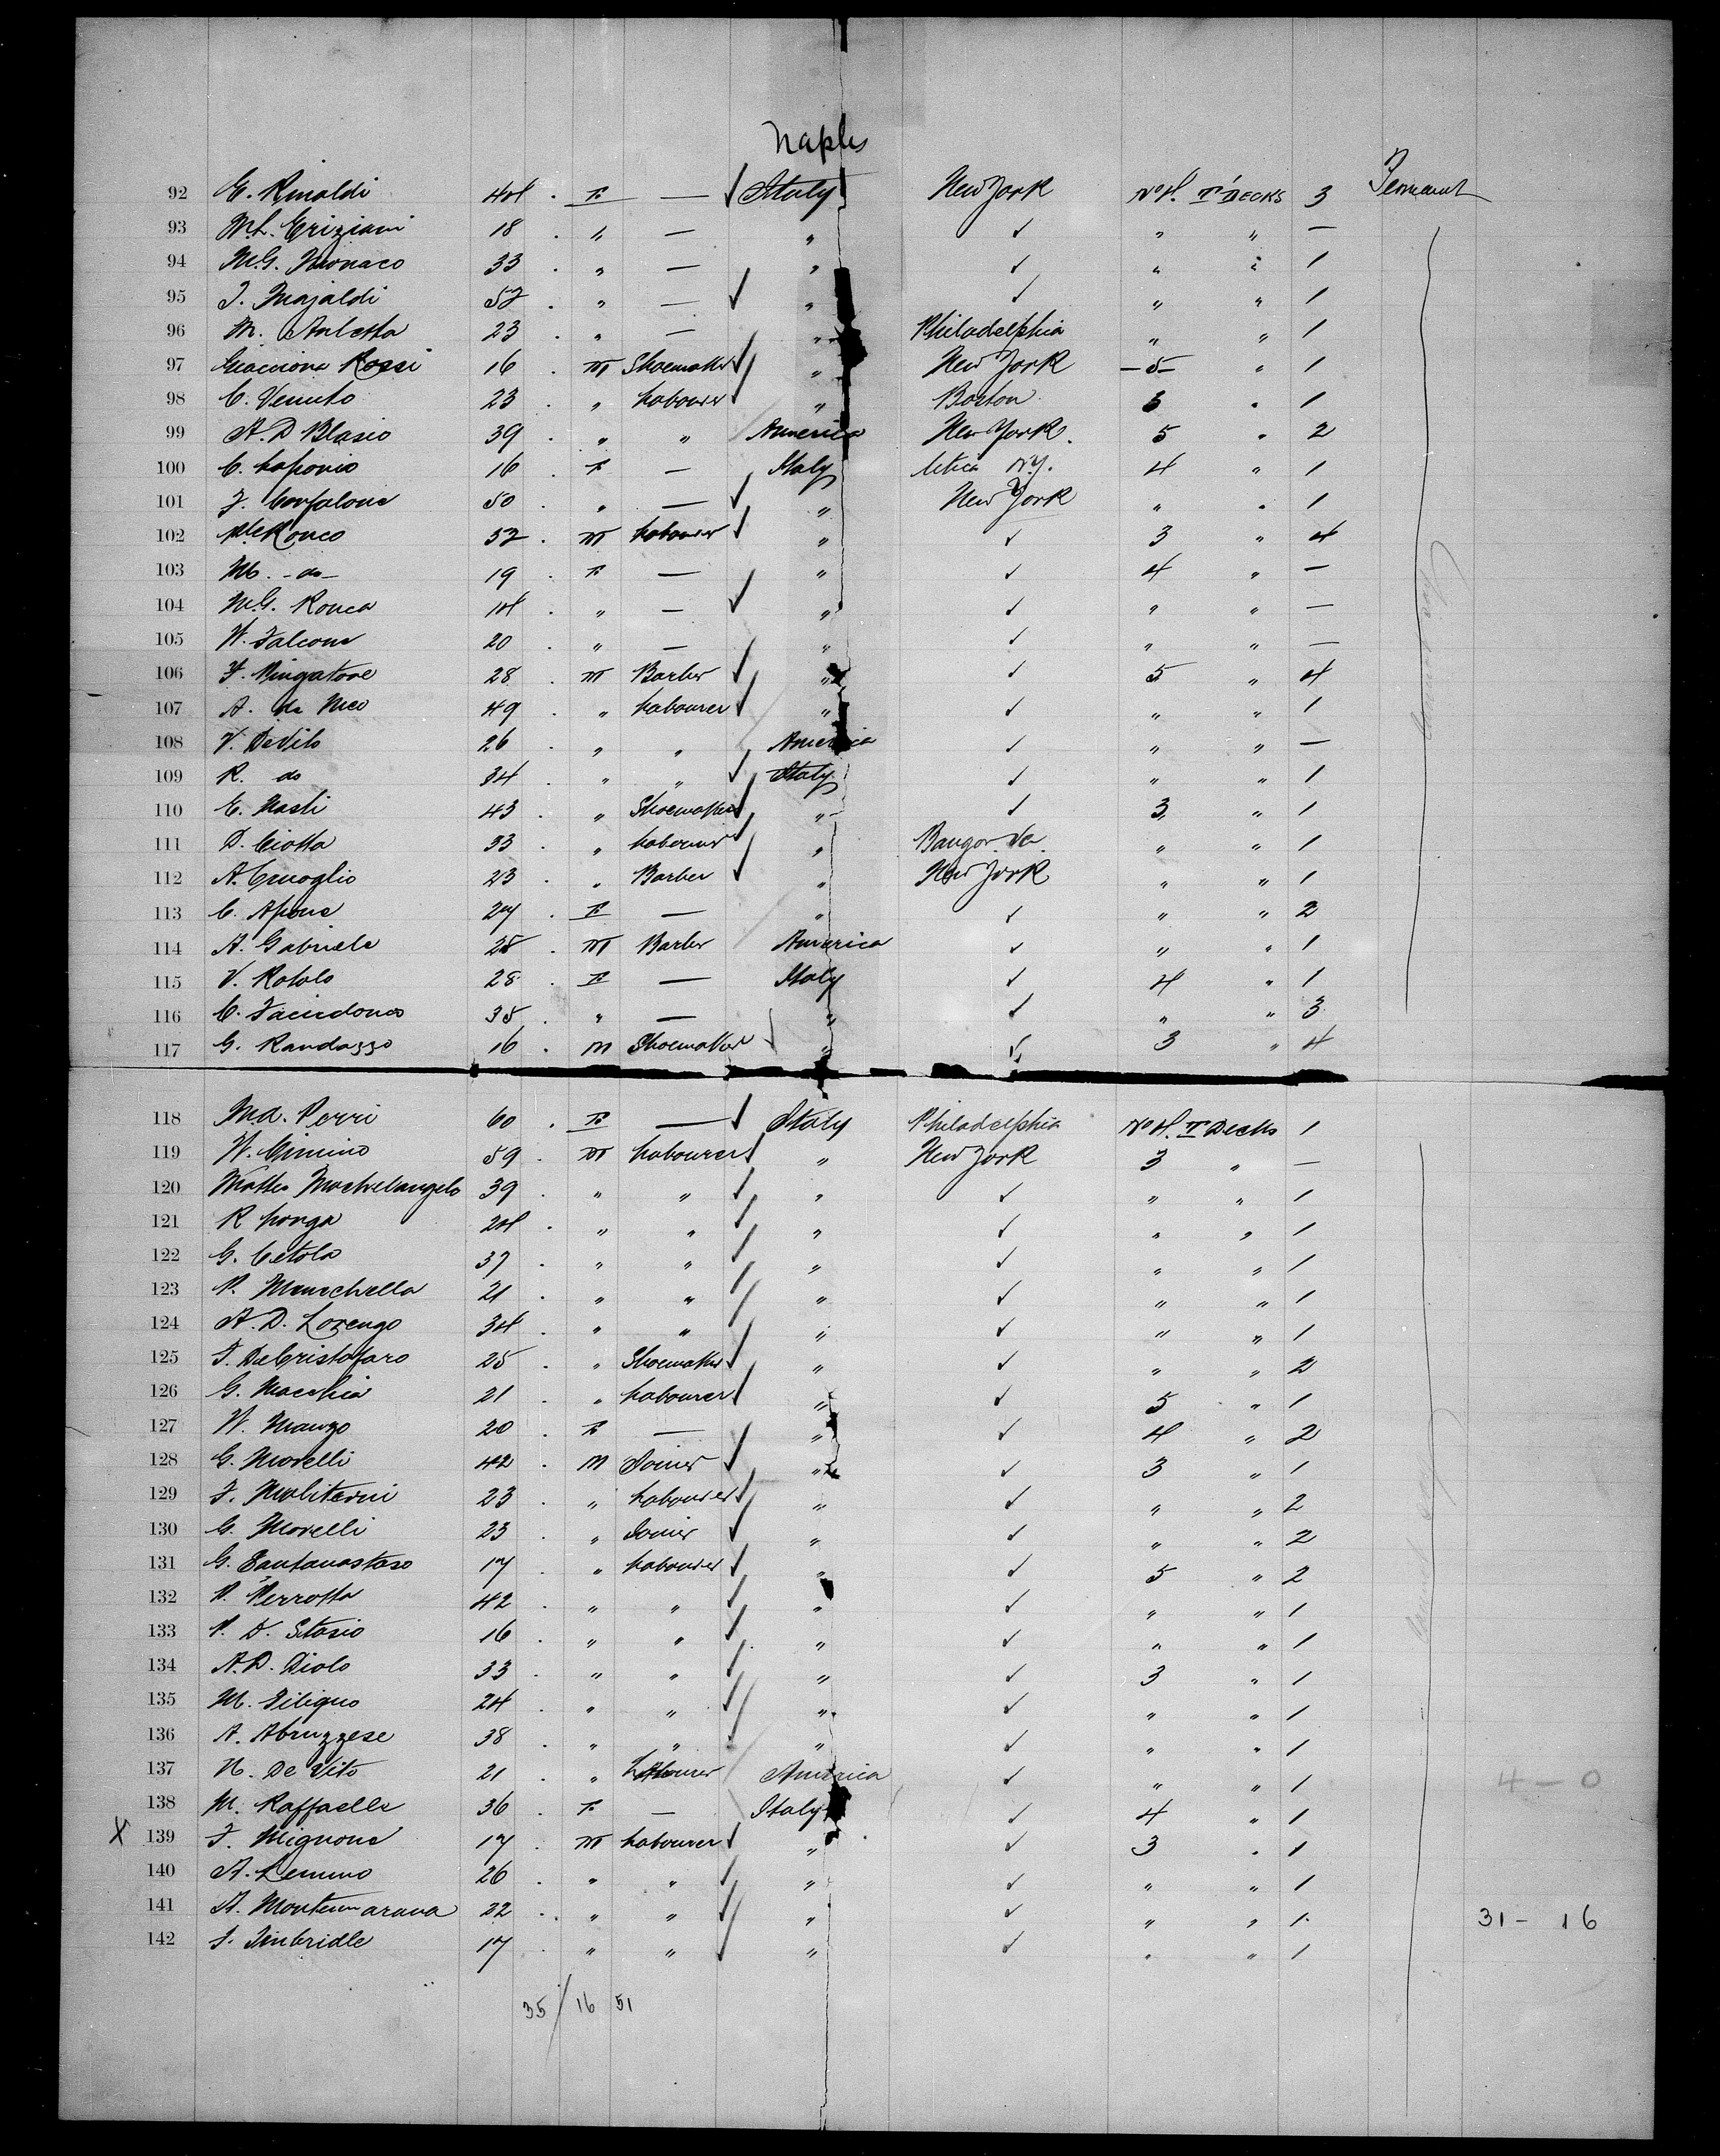 Naples
92 E. Rinaldi 44 . F — ✓ Italy New York No 4. T' DECKS 3 Permanent
93 M.L. Griziani 18 . " — " ✓ " " —
94 M.G. Monaco 33 . " — " ✓ " " 1
95 J. Majaldi 52 . " — ✓ " ✓ " " 1
96 M. Auletta 23 . " — " Philadelphia " " 1
97 Rossi 16 . M Shoemaker ✓ " New York -5- " 1
98 C. Venuto 23 . " Labourer ✓ " Boston 3 " 1
99 A. D Blasio 39 . " " America New York. 5 " 2
100 C. Laponio 16 . F — Italy Utica N.Y. 4 " 1
101 F. Confalone 50 . " — ✓ " New York " " 1
102 Ronco 52 . M Labourer ✓ " ✓ 3 " 4
103 M. -do- 19 . F — " ✓ 4 " —
104 M.G. Ronca 14 . " — ✓ " ✓ " " —
105 N. Falcone 20 . " — " ✓ " " —
106 F. Mingatore 28 . M Barber ✓ " ✓ 5 " 4
107 A. de Meo 49 . " Labourer ✓ " ✓ " " 1
108 V. DeVito 26 . " " America ✓ " " —
109 R. do 34 . " " ✓ Italy ✓ " " 1
110 E. Nasti 43 . " Shoemaker ✓ " ✓ 3 " 1
111 D. Ciotta 33 . " Labourer ✓ " Bangor. " " 1
112 A. Cruoglio 23 . " Barber ✓ " New York " " 1
113 C. Apone 27 . F — " ✓ " " 2
114 A. Gabriele 28 . M Barber America ✓ " " 1
115 V. Rotolo 28 . F — Italy ✓ 4 " 1
116 C. 35 . " — " ✓ " " 3
117 G. Randazzo 16 . M Shoemaker ✓ " ✓ 3 " 4
118 M.a. Perri 60 . F — ✓ Italy Philadelphia No 4. T' Decks 1
119 N. Cimino 59 . M Labourer ✓ " New York 3 " —
120 Matteo Mochelangelo 39 . " " ✓ " ✓ " " 1
121 R Longa 24 . " " ✓ " ✓ " " 1
122 G. Cetola 37 . " " ✓ " ✓ " " 1
123 P. Menechella 21 . " " ✓ " ✓ " " 1
124 A. D. Lorengo 34 . " " " ✓ " " 1
125 F. DeCristofaro 25 . " Shoemaker ✓ " ✓ " " 2
126 G. Macchia 21 . " Labourer ✓ " ✓ 5 " 1
127 N. Manzo 20 . F — " ✓ 4 " 2
128 G. Morelli 42 . M Joiner ✓ " ✓ 3 " 1
129 F. Moliterni 23 . " Labourer ✓ " ✓ " " 2
130 G. Morelli 23 . " Joiner ✓ " ✓ " " 2
131 G. Santanastaso 17 . " Labourer ✓ " ✓ 5 " 2
132 P. Perrotta 42 . " " ✓ " ✓ " " 1
133 P. D. Stasio 16 . " " ✓ " ✓ " " 1
134 A. D. Diolo 33 . " " ✓ " ✓ 3 " 1
135 M. Filigno 24 . " " ✓ " ✓ " " 1
136 A. Abruzzese 38 . " " ✓ " ✓ " " 1
137 N. De Vito 21 . " Labourer America ✓ " " 1 4 — 0
138 M. Raffaelle 36 . F — Italy ✓ 4 " 1
X 139 F. Mignone 17 . M Labourer ✓ " ✓ 3 " 1
140 A. Lemmo 26 . " " ✓ " ✓ " " 1
141 A. Montemarana 22 . " " ✓ " ✓ " " 1. 31 - 16
142 F. Timbridle 17 . " " ✓ " ✓ " " 1
35 / 16 51